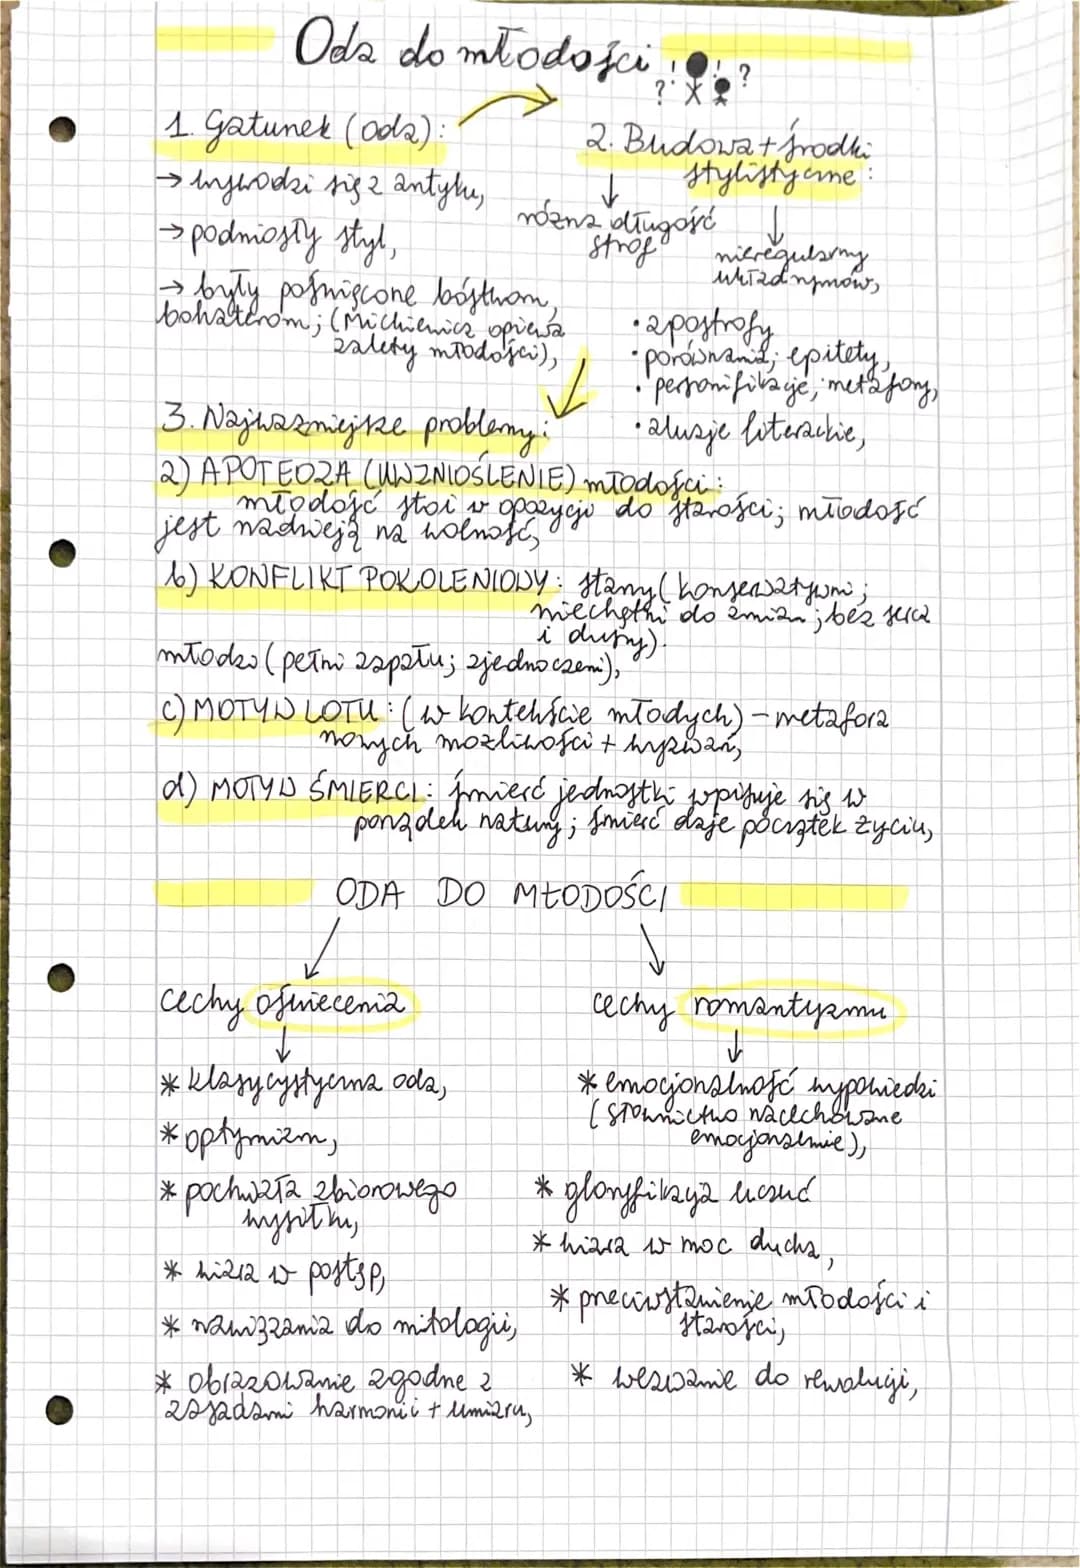 Oda do młodości
! ! ? ?
1. Gatunek (oda):
→ wywodzi się z antyku,
→ podniosły styl,
→ były poświęcone bóstwom,
bohaterom; (Mickiewicz opiewa
zalety młodości),
2. Budowa + środki
stylistyczne:
różna długość
strof
nieregularny
układ rymów,
• apostrofy
• porównania; epitety,
• personifikacje; metafory,
• aluzje literackie,
3. Najważniejsze problemy:
a) APOTEOZA (UWZNIOŚLENIE) młodości:
młodość stoi w opozycji do starości; młodość
jest nadzieją na wolność,
b) KONFLIKT POKOLENIOWY: starzy (konserwatywni;
niechętni do zmian; bez serca
i duszy).
młodzi (pełni zapału; zjednoczeni),
c) MOTYW LOTU: (w kontekście młodych) – metafora
nowych możliwości + wyzwań,
d) MOTYW ŚMIERCI: śmierć jednostki wpisuje się w
porządek natury; śmierć daje początek życiu,
ODA DO MŁODOŚCI
cechy oświecenia
* klasycystyczna oda,
* optymizm,
* pochwała zbiorowego
wysiłku,
* wiara w postęp,
* nawiązania do mitologii,
* obrazowanie zgodne z
zasadami harmonii + umiaru,
cechy romantyzmu
* emocjonalność wypowiedzi
(słownictwo nacechowane
emocjonalnie),
* gloryfikacja uczuć
* wiara w moc ducha,
* przeciwstawienie młodości i
starości,
* wezwanie do rewolucji,